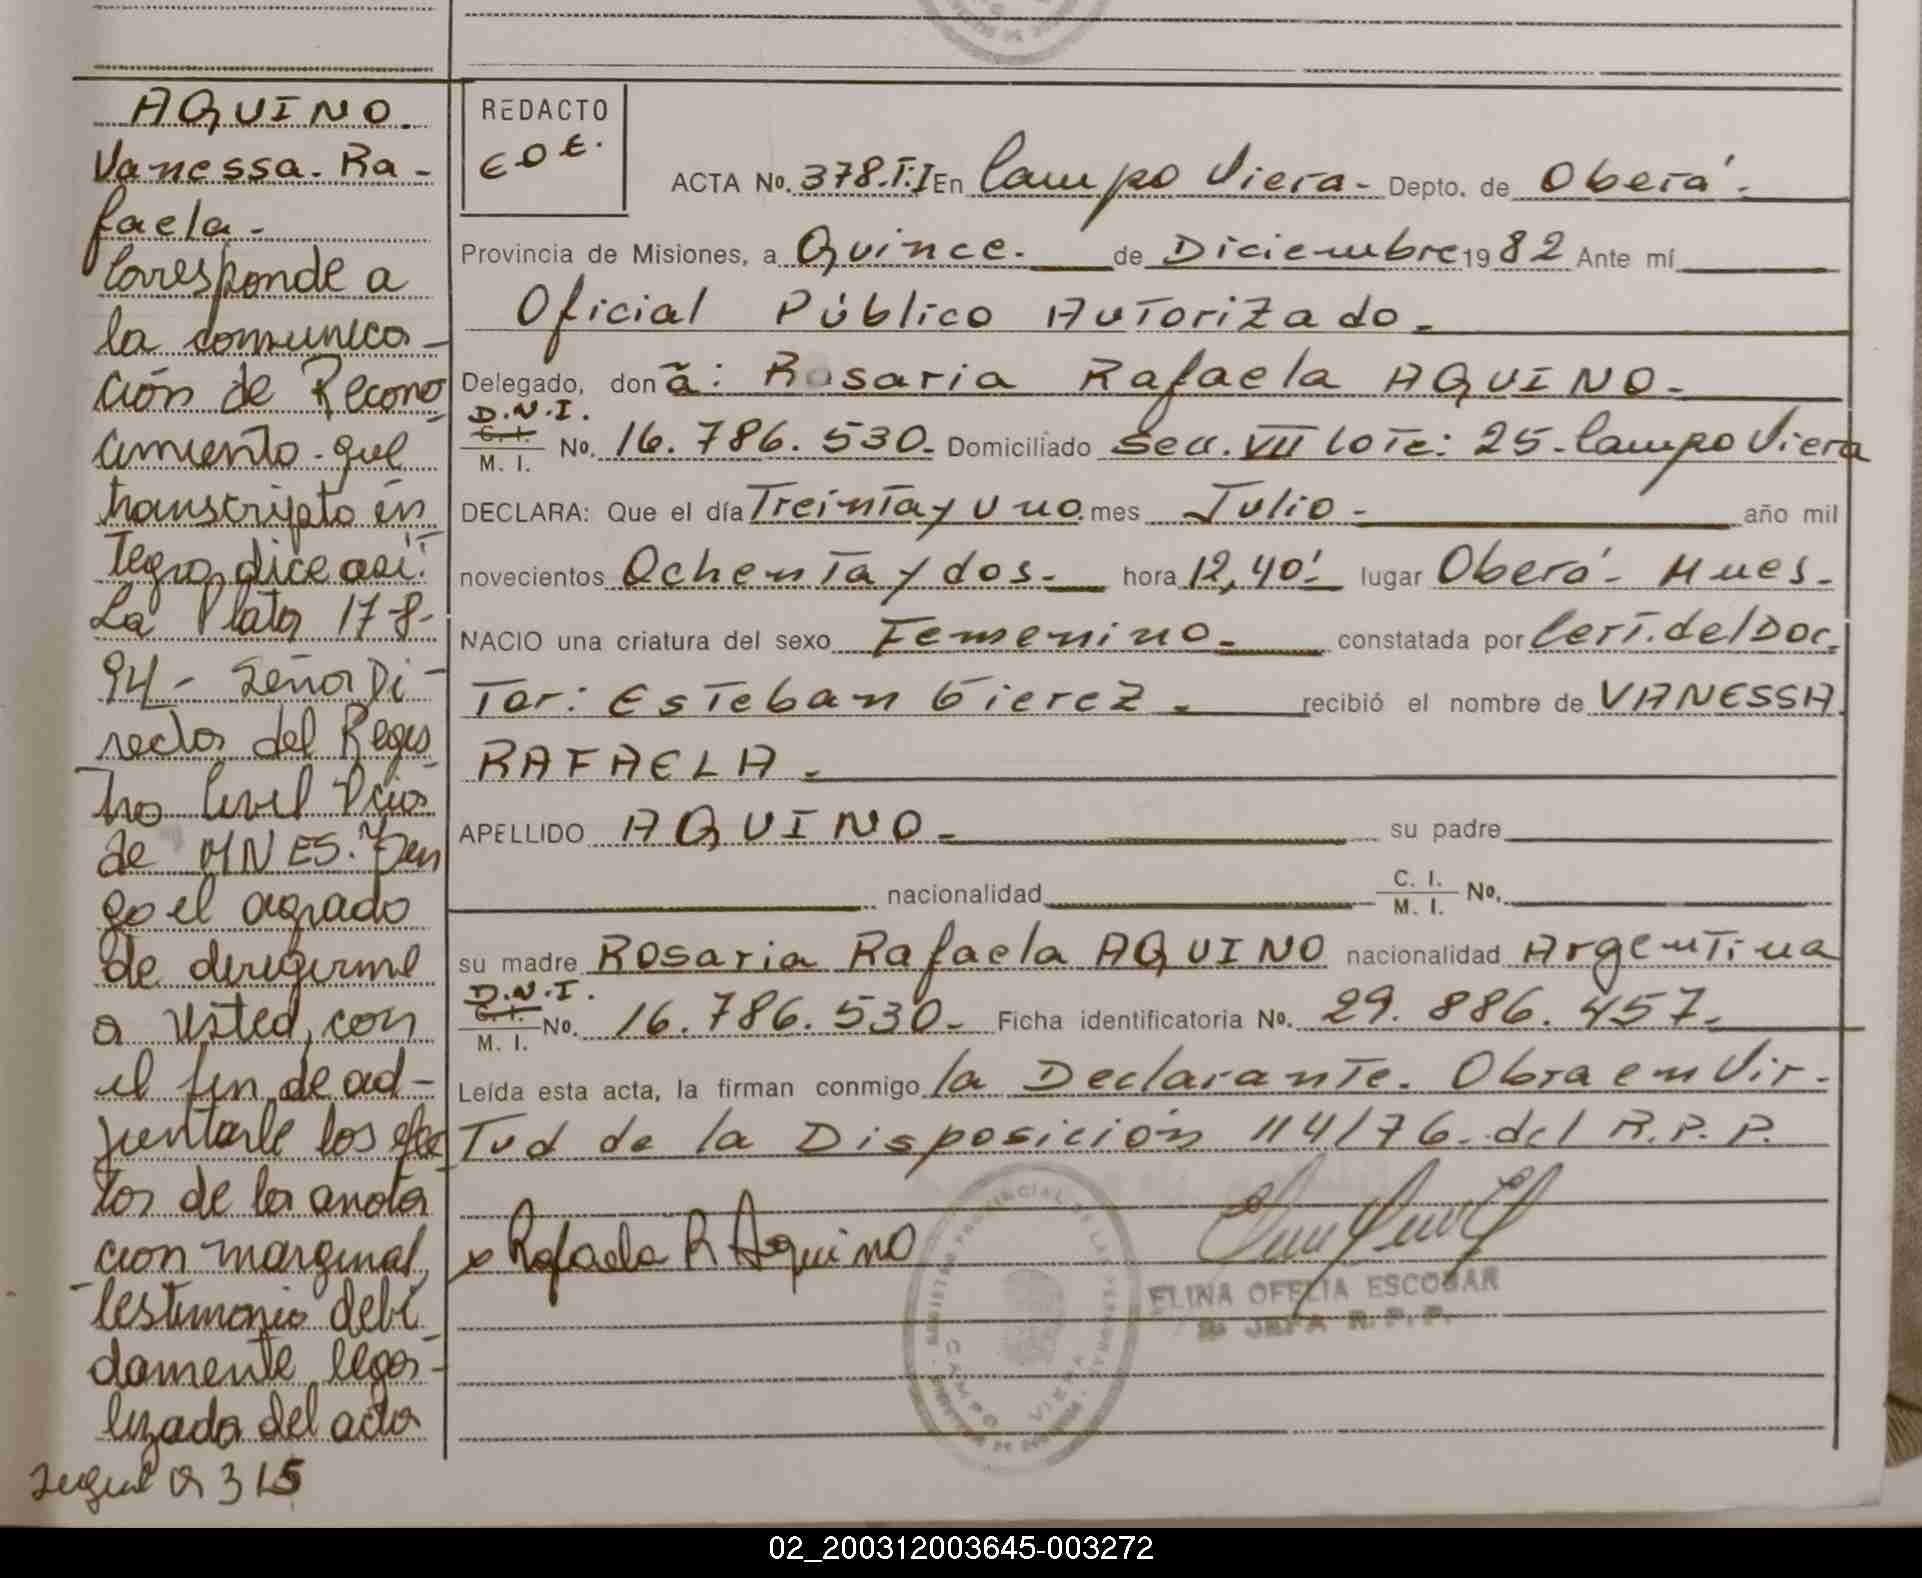 AQUINO.
Vanessa. Ra-
faela-
Corresponde a
la comunica-
ción de Recono-
cimiento que
transcripto ín-
tegro, dice así:
La Plata 17-8-
94- Señor Di-
rector del Regis
tro Civil Pcias
de MNES. Ten
go el agrado
de dirigirme
a usted, con
el fin de ad-
juntarle los efec
tos de la anota
cion marginal,
testimonio debi-
damente lega-
lizado del acta
Sigue a 315
REDACTO
EOE.
ACTA No. 378.T:I En Campo Viera- Depto. de Oberá-
Provincia de Misiones, a Quince. de Diciembre 1982 Ante mí
Oficial Público Autorizado-
Delegado, don ã: Rosaria Rafaela AQUINO-
D.N.I.
C. I.
M. I. No. 16.786.530- Domiciliado Secc. VII Lote: 25-Campo Viera
DECLARA: Que el día Treinta y uno. mes Julio- año mil
novecientos Ochenta y dos- hora 12,40' lugar Oberá- Mnes-
NACIO una criatura del sexo Femenino- constatada por Cert. del Doc-
tor: Esteban Gierez- recibió el nombre de VANESSA
RAFAELA-
APELLIDO AQUINO- su padre
nacionalidad C. I.
M. I. No.
su madre Rosaria Rafaela AQUINO nacionalidad Argentina
D.N.I.
C. I.
M. I. No. 16.786.530- Ficha identificatoria No. 29.886.457-
Leída esta acta, la firman conmigo la Declarante. Obra en Vir-
tud de la Disposición 114/76- del R.P.P.
x Rafaela R Aquino
REGISTRO PROVINCIAL DE LAS PERSONAS
CAMPO VIERA
ELINA OFELIA ESCOBAR
JEFA R.P.P.
02_200312003645-003272